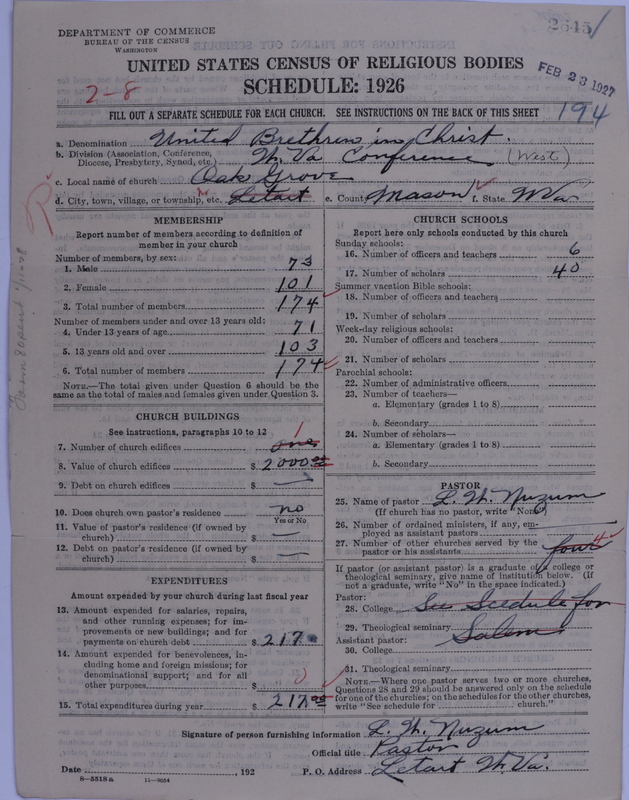 2645
DEPARTMENT OF COMMERCE
BUREAU OF THE CENSUS
WASHINGTON
UNITED STATES CENSUS OF RELIGIOUS BODIES
FEB 23 1927
2-8
SCHEDULE: 1926
FILL OUT A SEPARATE SCHEDULE FOR EACH CHURCH. SEE INSTRUCTIONS ON THE BACK OF THIS SHEET
194
a. Denomination United Brethren in Christ.
b. Division (Association, Conference, Diocese, Presbytery, Synod, etc.) W. Va Conference (West)
c. Local name of church Oak Grove
d. City, town, village, or township, etc. Letart e. County Mason f. State W Va
MEMBERSHIP
Report number of members according to definition of
member in your church
Number of members, by sex:
1. Male 73
2. Female 101
3. Total number of members 174
Number of members under and over 13 years old:
4. Under 13 years of age 71
5. 13 years old and over 103
6. Total number of members 174
NOTE.—The total given under Question 6 should be the
same as the total of males and females given under Question 3.
CHURCH BUILDINGS
See instructions, paragraphs 10 to 12
7. Number of church edifices one 1
8. Value of church edifices $ 2000.00
9. Debt on church edifices $ —
10. Does church own pastor's residence? no
Yes or No
11. Value of pastor's residence (if owned by
church) $ —
12. Debt on pastor's residence (if owned by
church) $ —
EXPENDITURES
Amount expended by your church during last fiscal year
13. Amount expended for salaries, repairs,
and other running expenses; for im-
provements or new buildings; and for
payments on church debt $ 217
14. Amount expended for benevolences, in-
cluding home and foreign missions; for
denominational support; and for all
other purposes $
15. Total expenditures during year $ 217.00
CHURCH SCHOOLS
Report here only schools conducted by this church
Sunday schools:
16. Number of officers and teachers 6
17. Number of scholars 40
Summer vacation Bible schools:
18. Number of officers and teachers
19. Number of scholars
Week-day religious schools:
20. Number of officers and teachers
21. Number of scholars
Parochial schools:
22. Number of administrative officers
23. Number of teachers—
a. Elementary (grades 1 to 8)
b. Secondary
24. Number of scholars—
a. Elementary (grades 1 to 8)
b. Secondary
PASTOR
25. Name of pastor L. W. Nuzum
(If church has no pastor, write "None")
26. Number of ordained ministers, if any, em-
ployed as assistant pastors
27. Number of other churches served by the
pastor or his assistants four 4
If pastor (or assistant pastor) is a graduate of a college or
theological seminary, give name of institution below. (If
not a graduate, write "No" in the space indicated.)
Pastor:
28. College See Scedule for
29. Theological seminary Salem
Assistant pastor:
30. College
31. Theological seminary
NOTE.—Where one pastor serves two or more churches,
Questions 28 and 29 should be answered only on the schedule
for one of the churches; on the schedules for the other churches,
write "See schedule for church."
Signature of person furnishing information L. W. Nuzum
Official title Pastor
Date , 192 P. O. Address Letart W. Va.
8-5518a 11-9054